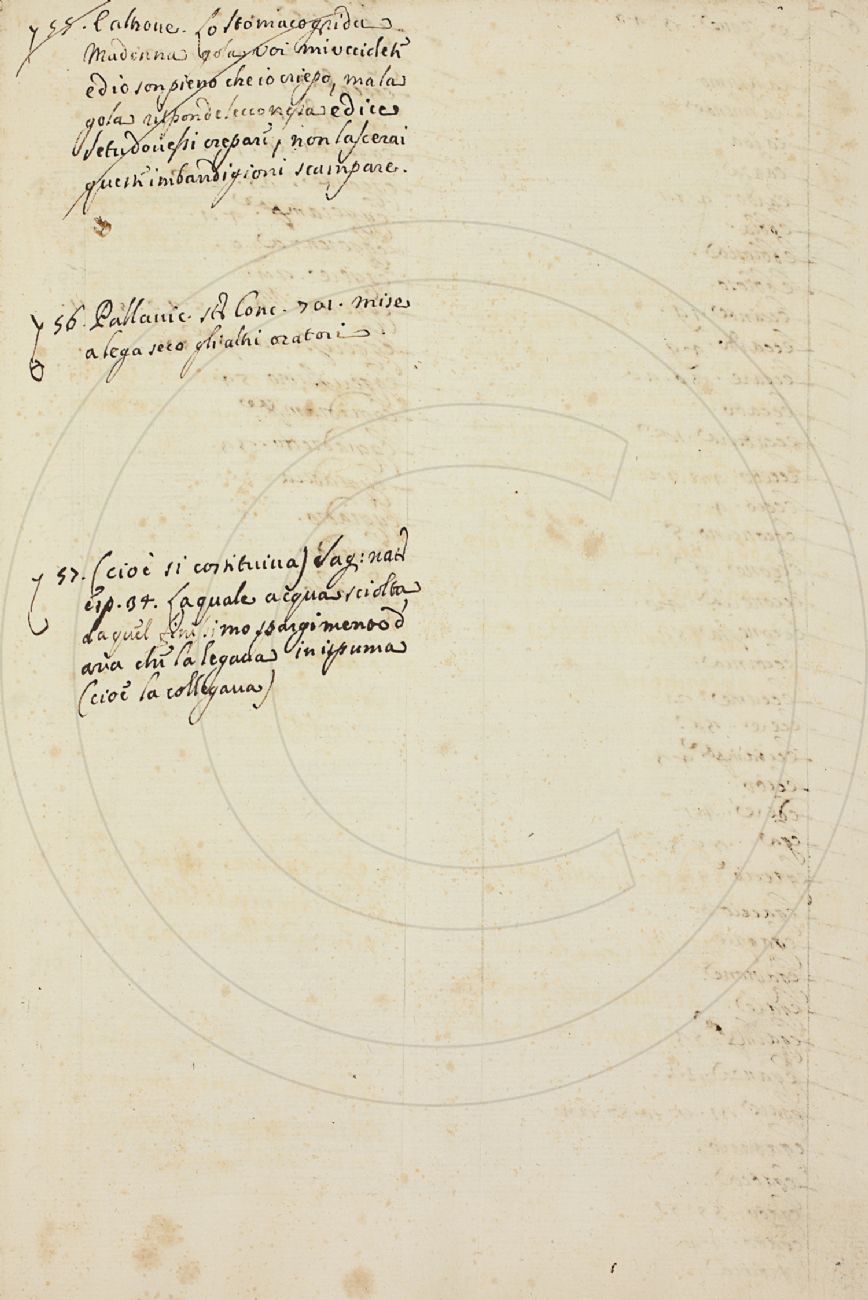 55. Ealtrove. Lo stomaco grida
Madonna gola voi mi uccidete
ed io son pieno che io criepo, ma la
gola risponde ecconesia e dice
se tu dovessi crepare, non lascerai
queste imbandigioni scampare.
56. Pallavic. st. Conc. 701. mise
a lega seco gli altri oratori
57. (cioè si costituiva) Sag: nat
esp. 34. La quale acqua sciolta
da quel finissimo spargimento d'
aria che la legava in ispuma
(cioè la collegava)